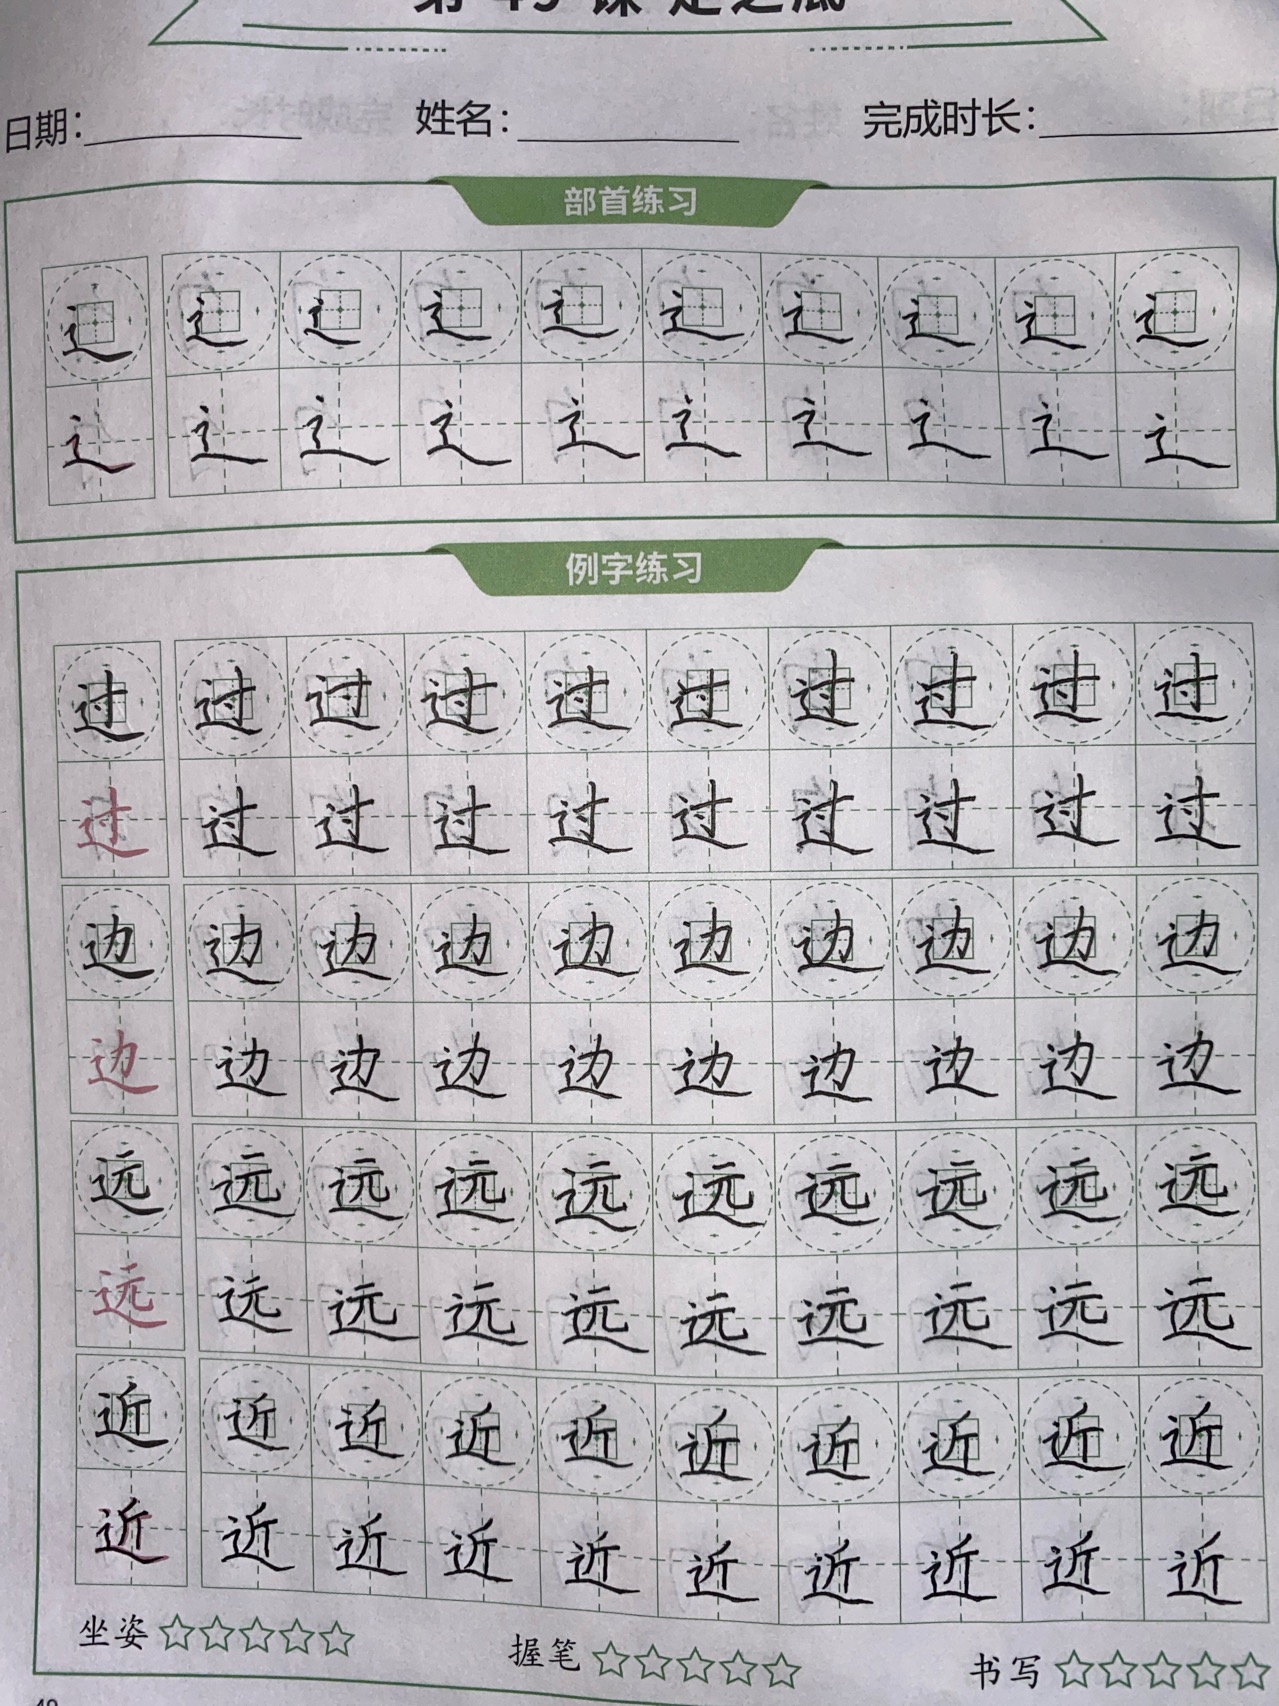 第 49 课 走之底
日期： 姓名： 完成时长：
部首练习
辶 辶 辶 辶 辶 辶 辶 辶 辶 辶
辶 辶 辶 辶 辶 辶 辶 辶 辶 辶
例字练习
过 过 过 过 过 过 过 过 过 过
过 过 过 过 过 过 过 过 过 过
边 边 边 边 边 边 边 边 边 边
边 边 边 边 边 边 边 边 边 边
远 远 远 远 远 远 远 远 远 远
远 远 远 远 远 远 远 远 远 远
近 近 近 近 近 近 近 近 近 近
近 近 近 近 近 近 近 近 近 近
坐姿 ☆☆☆☆☆ 握笔 ☆☆☆☆☆ 书写 ☆☆☆☆☆
49